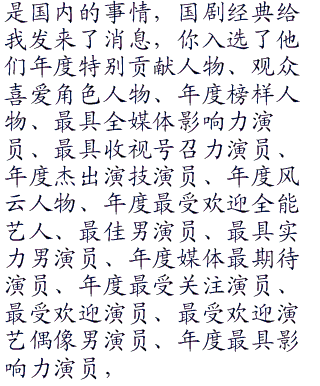 是国内的事情，国剧经典给
我发来了消息，你入选了他
们年度特别贡献人物、观众
喜爱角色人物、年度榜样人
物、最具全媒体影响力演
员、最具收视号召力演员、
年度杰出演技演员、年度风
云人物、年度最受欢迎全能
艺人、最佳男演员、最具实
力男演员、年度媒体最期待
演员、年度最受关注演员、
最受欢迎演员、最受欢迎演
艺偶像男演员、年度最具影
响力演员，